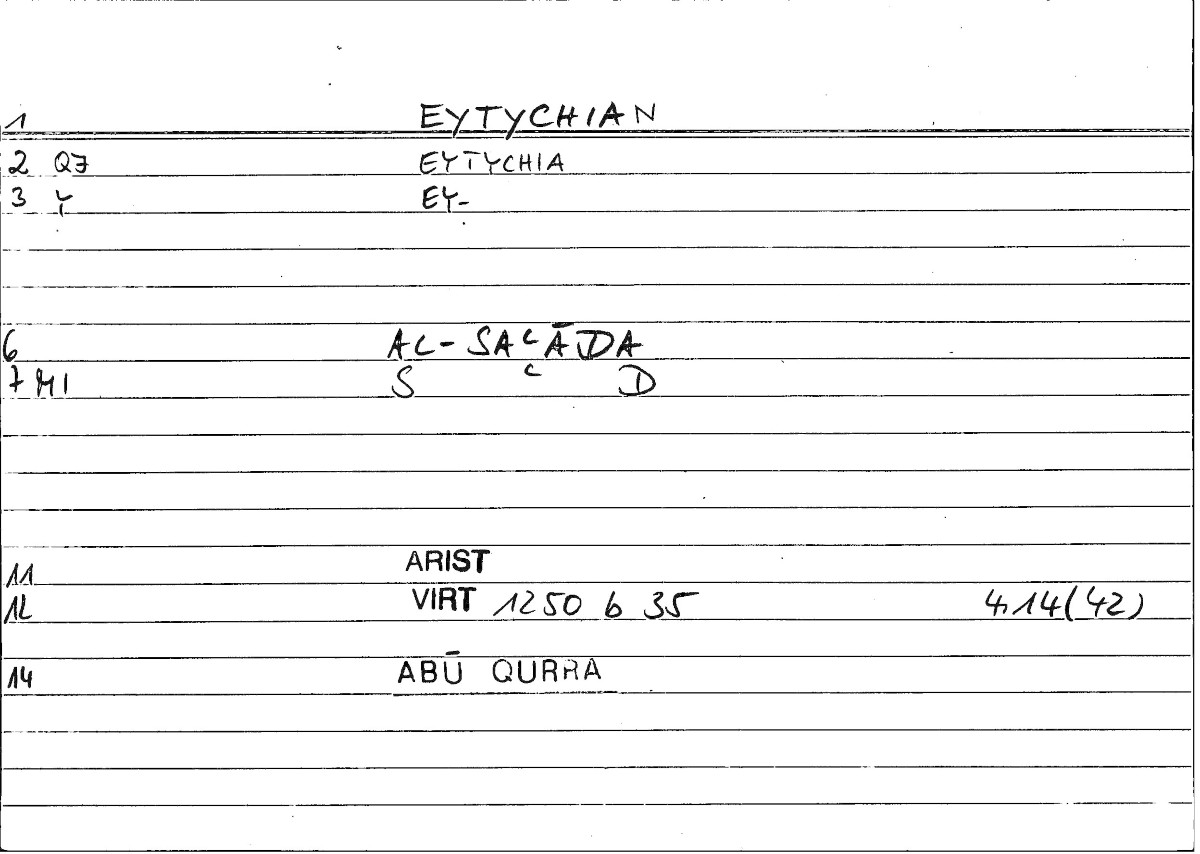 1 EYTYCHIAN
2 QZ EYTYCHIA
3 Y EY-
6 AL-SAʿĀDA
7 MI S ʿ D
11 ARIST
12 VIRT 1250 b 35 4,14(42)
14 ABŪ QURRA